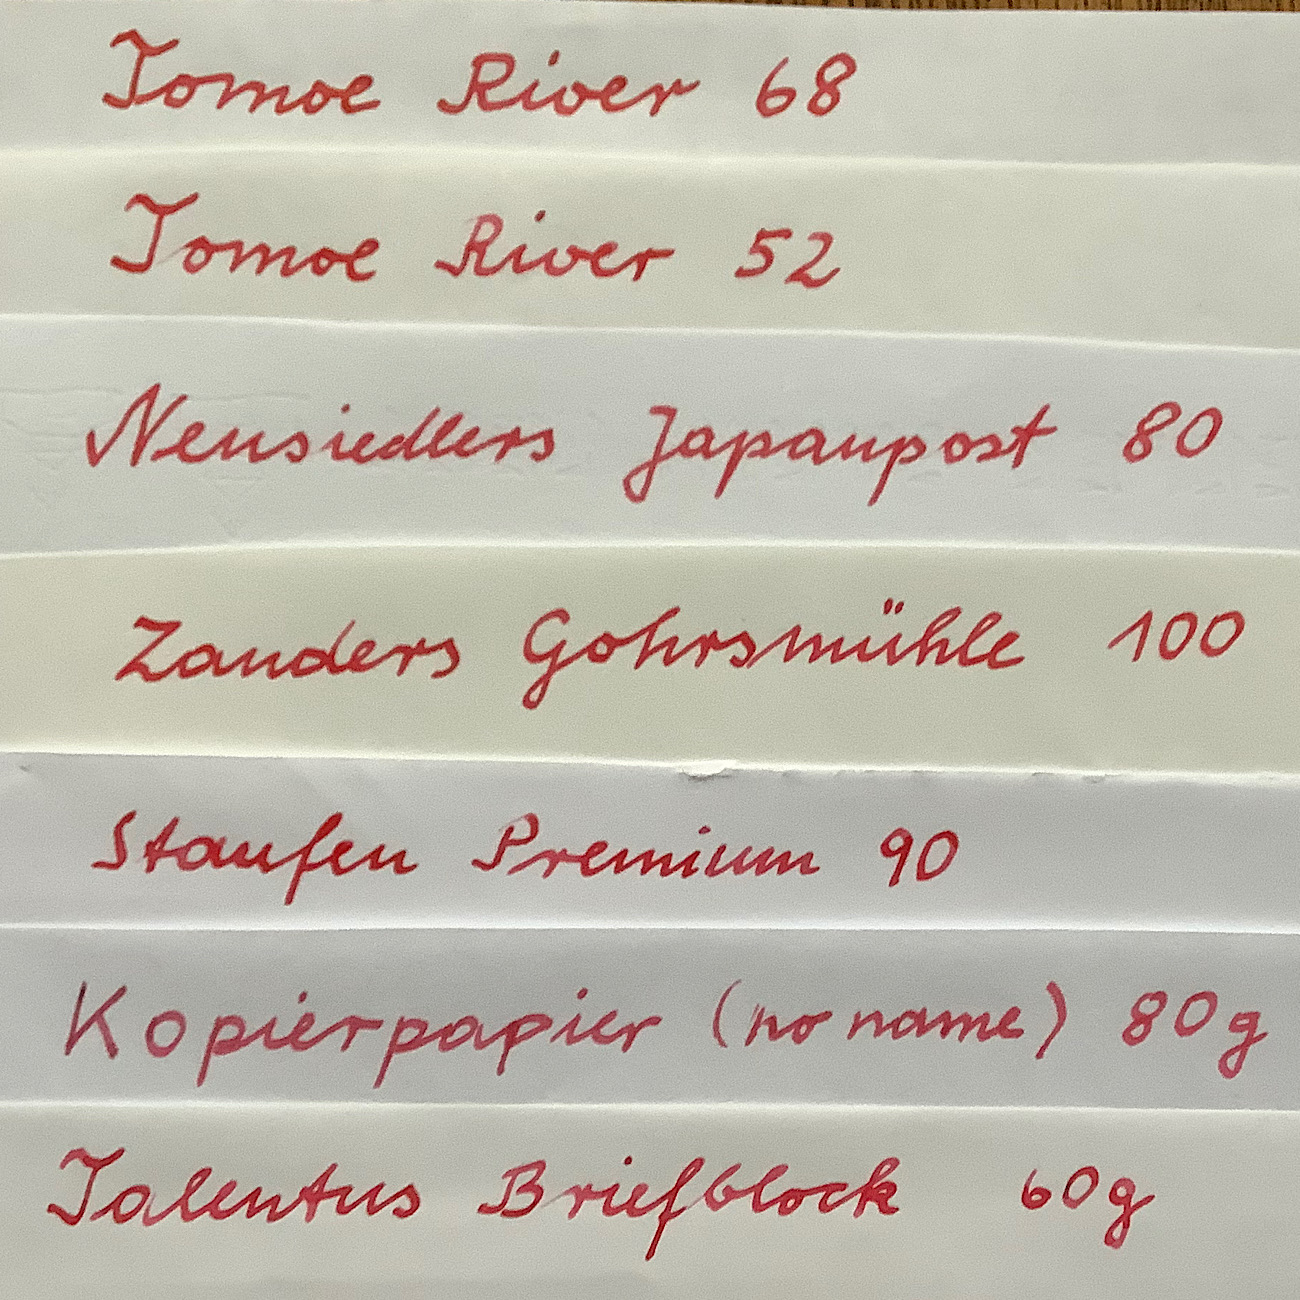 Tomoe River 68
Tomoe River 52
Neusiedlers Japanpost 80
Zanders Gohrsmühle 100
Staufen Premium 90
Kopierpapier (no name) 80g
Talentus Briefblock 60g